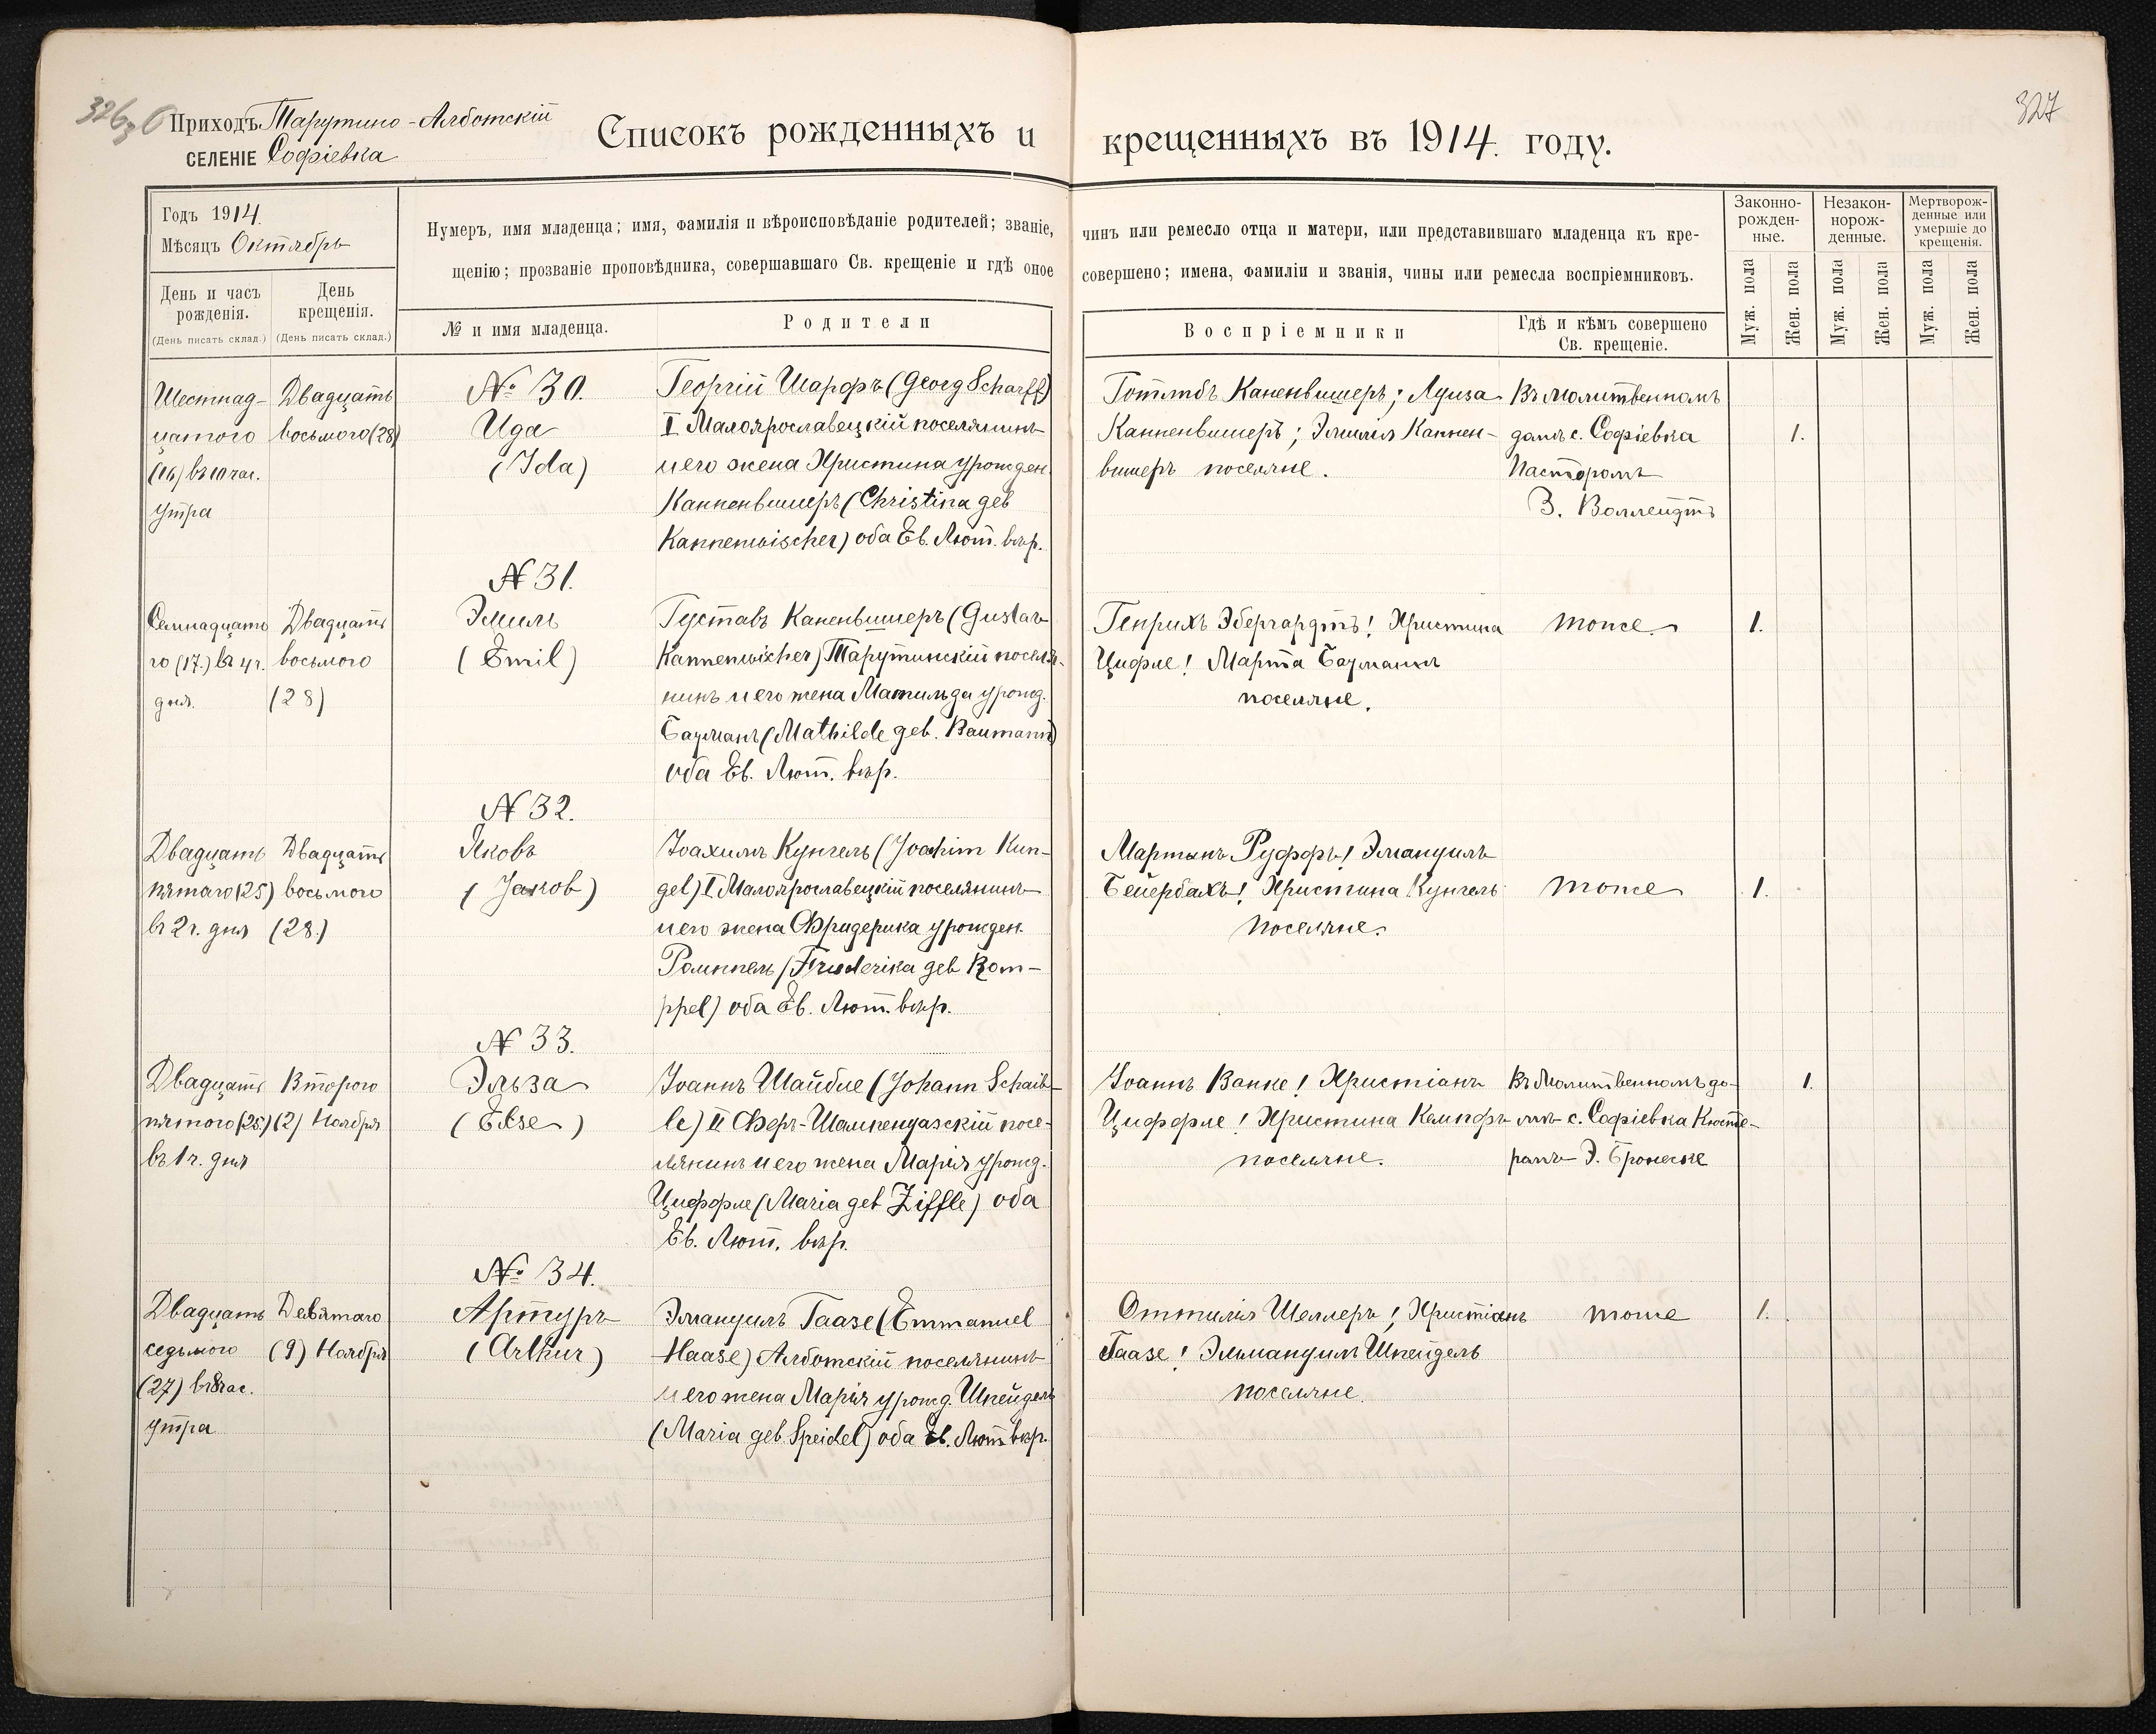 326
об
327
Приходъ Тарутино-Алботскій
СЕЛЕНІЕ Софіевка
Списокъ рожденныхъ и крещенныхъ въ 1914. году.
Годъ 1914.
Мѣсяцъ Октябрь
Нумеръ, имя младенца; имя, фамилія и вѣроисповѣданіе родителей; званіе, чинъ или ремесло отца и матери, или представившаго младенца къ кре-
щенію; прозваніе проповѣдника, совершавшаго Св. крещеніе и гдѣ оное совершено; имена, фамиліи и званія, чины или ремесла воспріемниковъ.
Законно-
рожден-
ные.
Незакон-
норож-
денные.
Мертворож-
денные или
умершіе до
крещенія.
День и часъ
рожденія.
(День писать склад.)
День
крещенія.
(День писать склад.)
№ и имя младенца.
Родители
Воспріемники
Гдѣ и кѣмъ совершено
Св. крещеніе.
Муж. пола
Жен. пола
Муж. пола
Жен. пола
Муж. пола
Жен. пола
Шестнад-
цатого
(16) въ 10 час.
утра
Двадцать
восьмого (28)
№ 30.
Ида
(Ida)
Георгій Шарфъ (Georg Scharff)
I Малоярославецкій поселянинъ
и его жена Христина урожден.
Канненвишеръ (Christina geb
Kannenwischer) оба Ев. Лют. вѣр.
Готлибъ Каненвишеръ; Луиза
Канненвишеръ; Эмилія Каннен-
вишеръ поселяне.
Въ Молитвенномъ
домѣ с. Софіевка
Пасторомъ
З. Воллейдтъ
1.
Семнадцато
го (17.) въ 4 ч.
дня.
Двадцать
восьмого
(28)
N 31.
Эмиль
(Emil)
Густавъ Каненвишеръ (Gustav
Kannenwischer) Тарутинскій поселя-
нинъ и его жена Матильда урожд.
Бауманъ (Mathilde geb. Baumann)
оба Ев. Лют. вѣр.
Генрихъ Эбергардтъ! Христина
Цифле! Марта Бауманъ
поселяне.
тоже.
1.
Двадцать
пятаго (25)
въ 2 ч. дня
Двадцать
восьмого
(28.)
N 32.
Яковъ
(Jakob)
Іоахимъ Кунгель (Joachim Kun-
gel) I Малоярославецкій поселянинъ
и его жена Фридерика урожден.
Ромппель (Friederika geb Rom-
ppel) оба Ев. Лют. вѣр.
Мартинъ Руффъ! Эмануилъ
Бейербахъ! Христина Кунгель
поселяне.
тоже
1.
Двадцать
пятого (25.)
въ 1 ч. дня
Второго
(2) Ноября
N 33.
Эльза
(Else)
Іоаннъ Шайбле (Johann Schaib-
le) II Фер-Шампенуазскій посе-
лянинъ и его жена Марія урожд.
Циффле (Maria geb Ziffle) оба
Ев. Лют. вѣр.
Іоаннъ Ванке! Христіанъ
Циффле! Христина Кемпфъ
поселяне.
Въ Молитвенномъ до-
мѣ с. Софіевка Кюсте-
ромъ Э. Бронеске
1.
Двадцать
седьмого
(27) въ 8 час.
утра
Девятаго
(9) Ноября
№ 34.
Артуръ
(Arthur)
Эмануилъ Гаазе (Emmanuel
Haase) Алботскій поселянинъ
и его жена Марія урожд. Шпейдель
(Maria geb Speidel) оба Ев. Лют вѣр.
Оттилія Шеллеръ! Христіанъ
Гаазе! Эммануилъ Шпейдель
поселяне.
тоже
1.